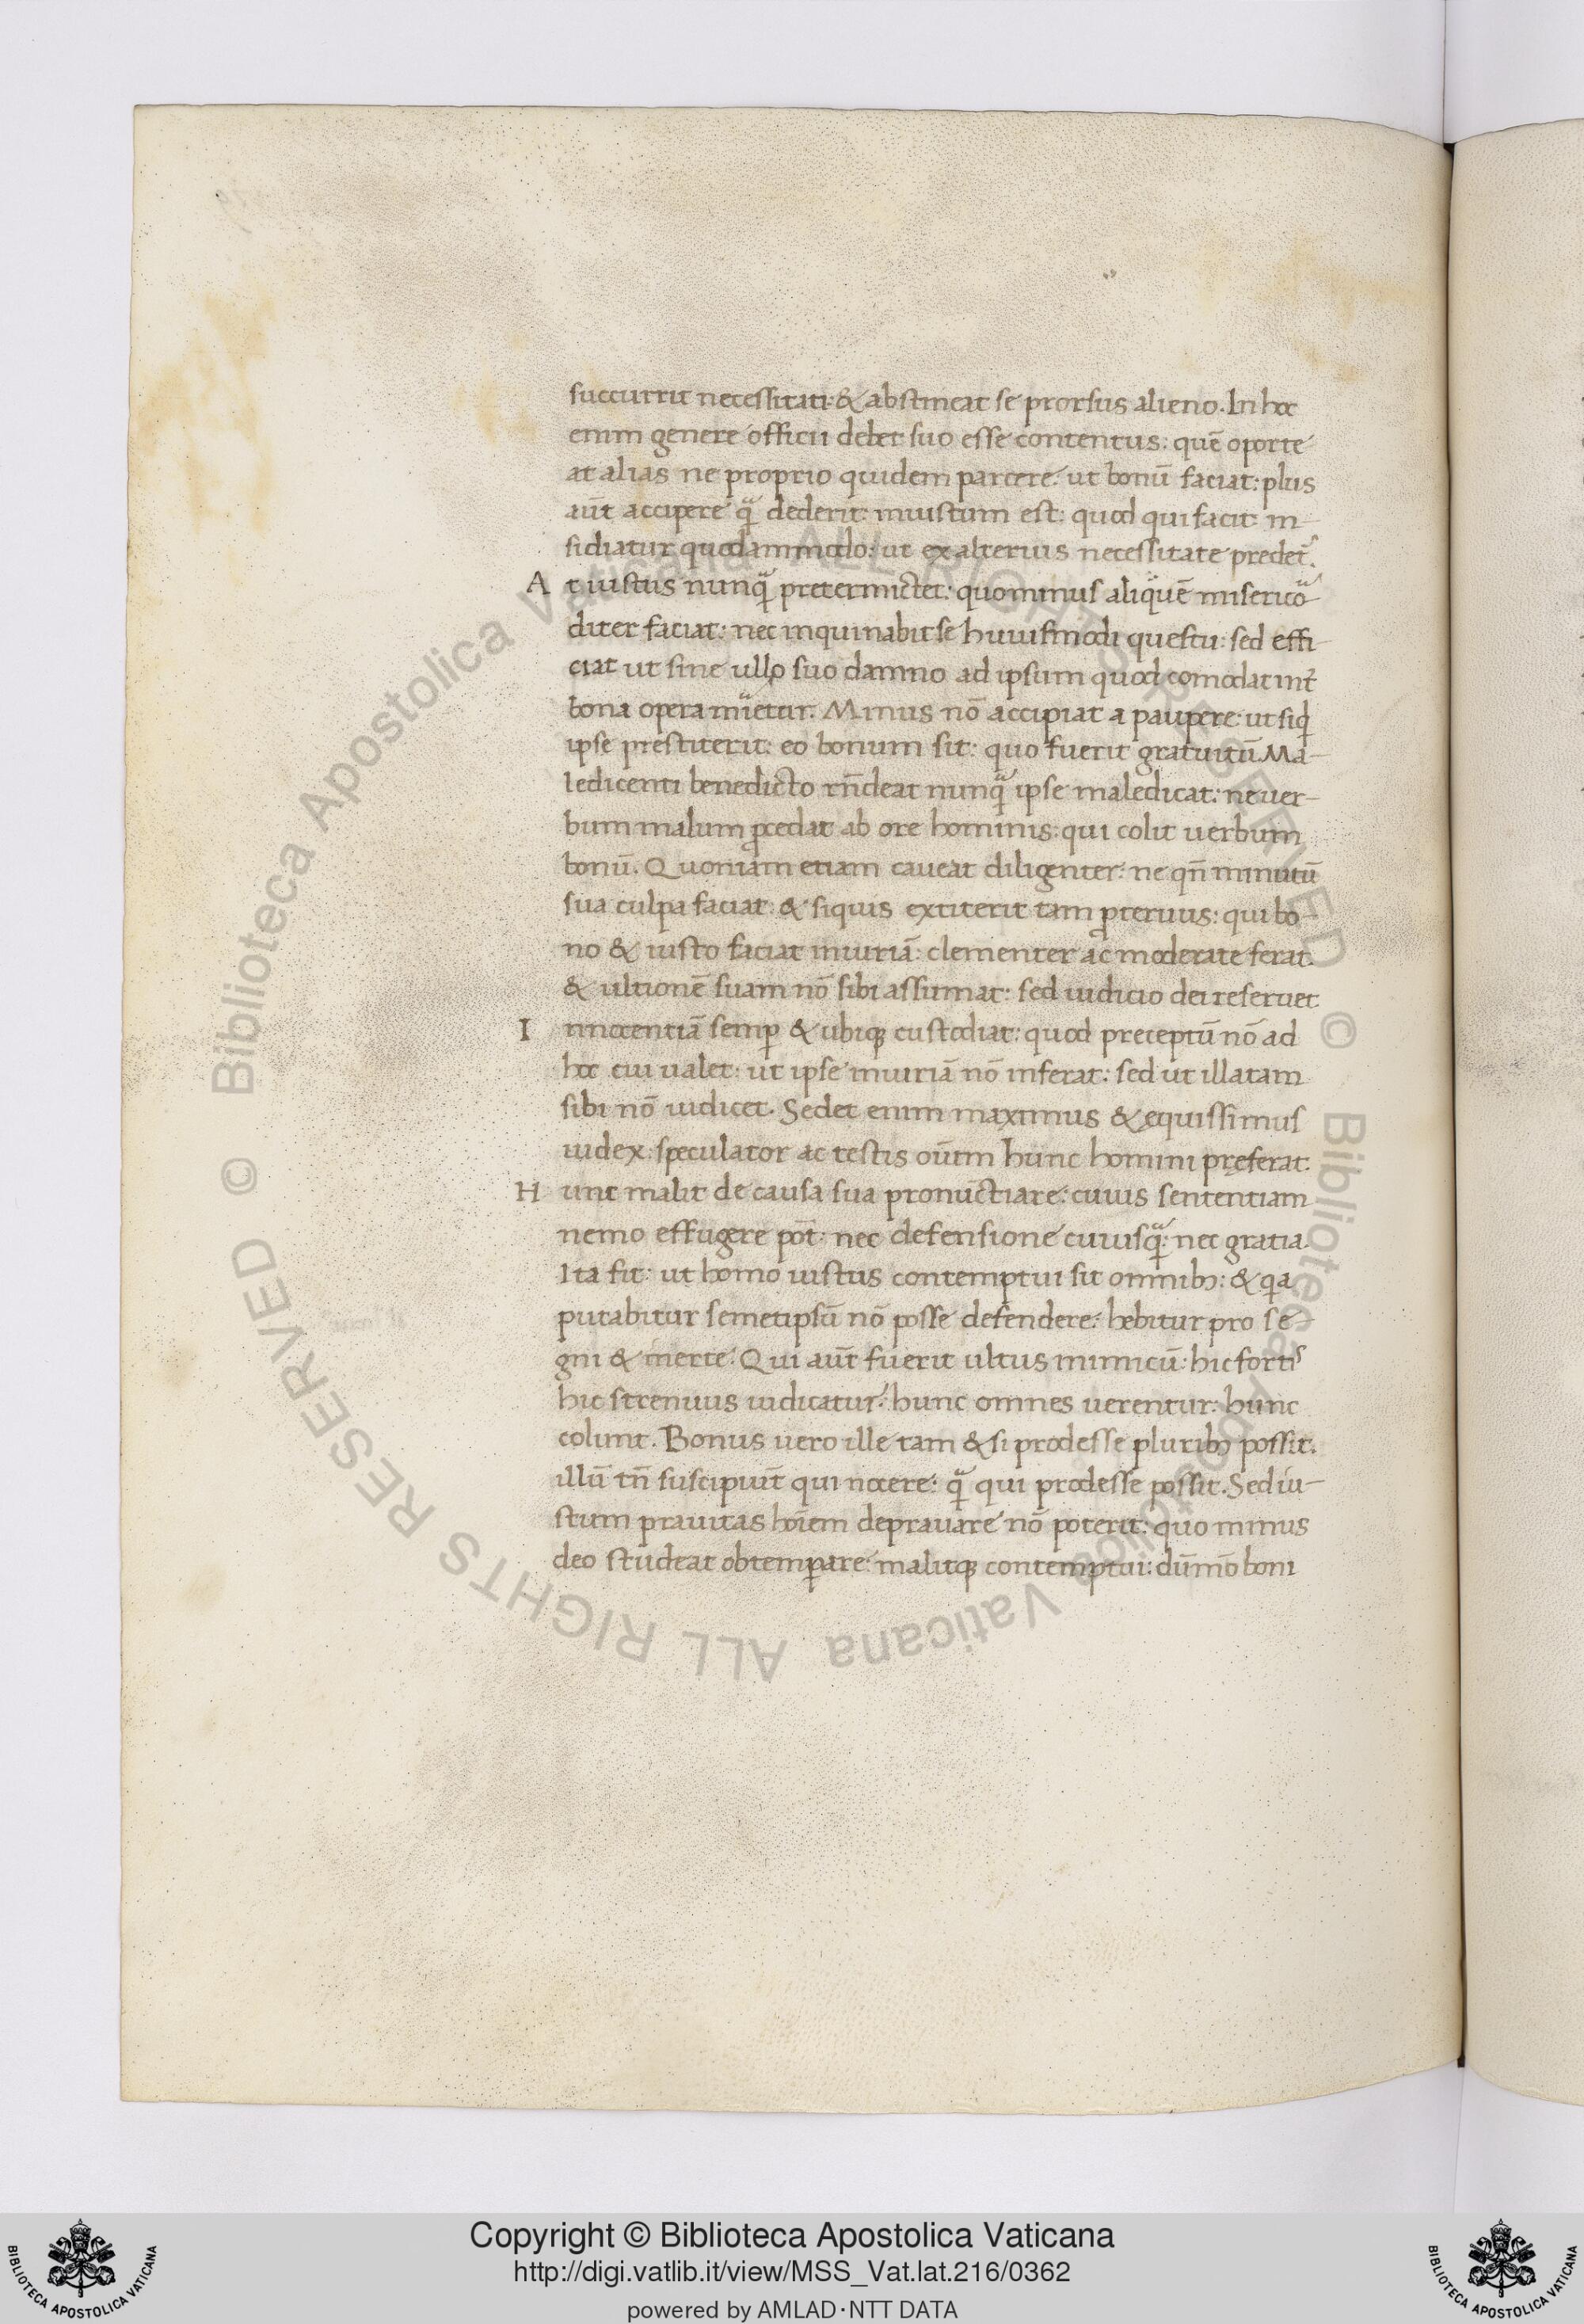 succurrit necessitati: & abstineat se prorsus alieno. In hoc
enim genere officii debet suo esse contentus: quē oporte
at alias ne proprio quidem parcere: ut bonū faciat: plus
aūt accipere qͣ dederit: iniustum est: quod qui facit in-
sidiatur quodammodo: ut ex alterius necessitate predet᷑.
A t iustus nunqͣ pretermictet: quominus aliquē miserico-
diter faciat: nec inquinabit se huiusmodi questu: sed effi-
ciat ut sine ullo suo damno ad ipsum quod comodat int᷑
bona opera
ipse prestiterit: eo bonum sit: quo fuerit gratuitū. Ma-
ledicenti benedicto rn̄deat nunqͣ ipse maledicat: ne uer-
bum malum ꝓcedat ab ore hominis: qui colit uerbum
bonū. Quoniam etiam caueat diligenter: ne qn̄ inimicū
sua culpa faciat: & siquis extiterit tam ꝓteruus: qui bo-
no & iusto faciat iniuriā: clementer ac moderate ferat.
& ultionē suam nō sibi assumat: sed iudicio dei reseruet
I nnocentiā semꝑ & ubiqꝫ custodiat: quod preceptū nō ad
hoc ualet: ut ipse iniuriā nō inferat: sed ut illatam
sibi nō uidicet. Sedet enim maximus & equissimus
iudex: speculator ac testis oūm hunc homini pręferat.
H unc malit de causa sua pronūctiare: cuius sententiam
nemo effugere pōt: nec defensione cuiusqͣ: nec gratia.
Ita fit: ut homo iustus contemptui sit omnibꝫ: & qa
putabitur semetipsū nō posse defendere: hēbitur pro se-
gni & inerte. Qui aūt fuerit ultus inimicū: hic fortis
hic strenuus iudicatur: hunc omnes uerentur: hunc
colunt. Bonus uero ille tam & si prodesse pluribꝫ possit.
illū tn̄ suscipiūt qui nocere: qͣ qui prodesse possit. Sed iu-
stum prauitas hoīem deprauare nō poterit: quo minus
deo studeat obtemꝑare: malitqꝫ contemptui: dūmō boni
Copyright © Biblioteca Apostolica Vaticana
http://digi.vatlib.it/view/MSS_Vat.lat.216/0362
powered by AMLAD·NTT DATA